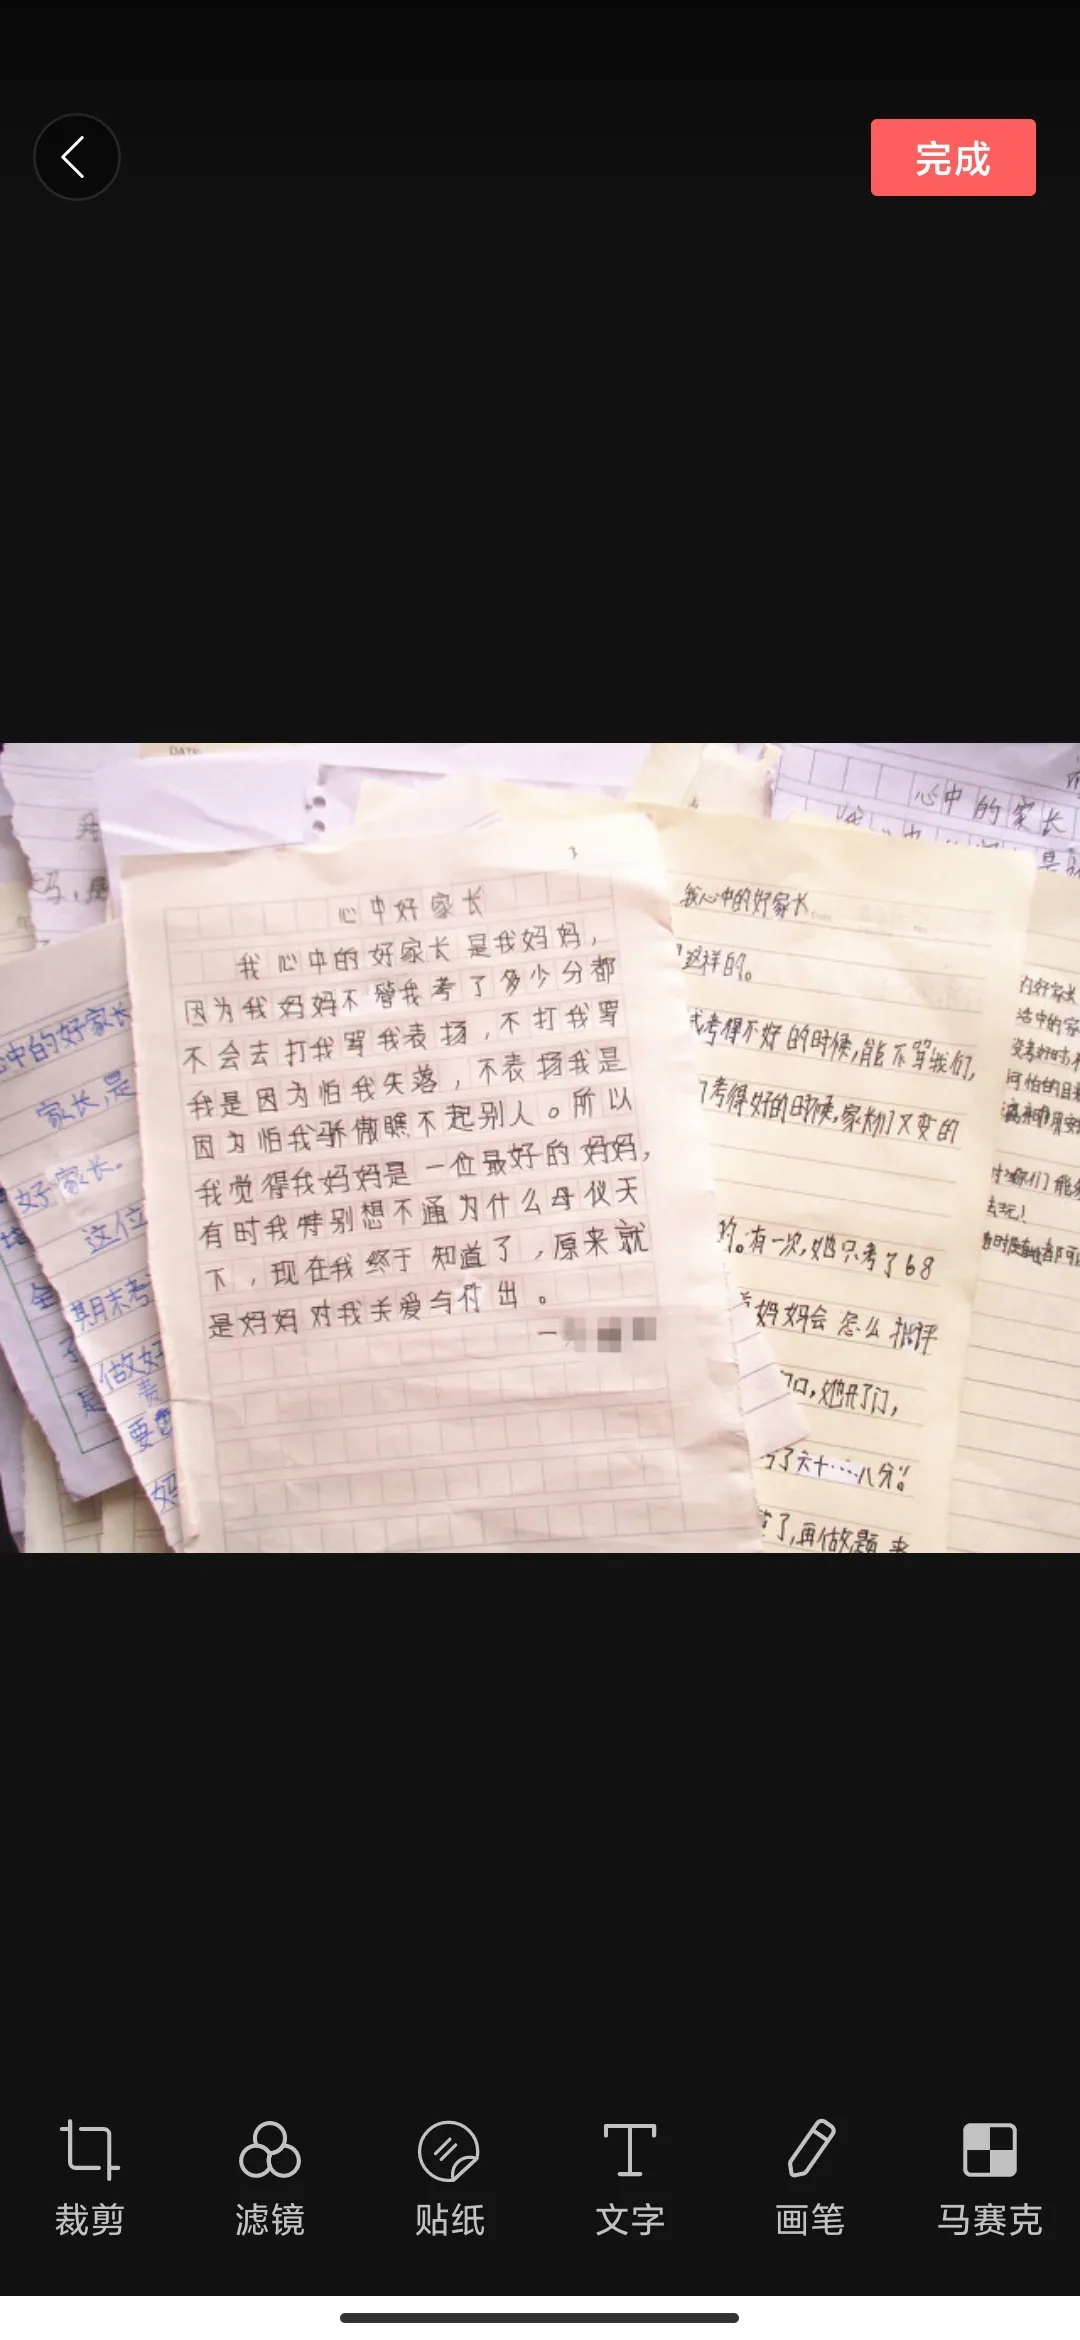 完成
DATE
心中的家长
心中好家长
我心中的好家长是我妈妈，
因为我妈妈不管我考了多少分都
不会去打我骂我表扬，不打我骂
我是因为怕我失落，不表扬我是
因为怕我骄傲瞧不起别人。所以
我觉得我妈妈是一位最好的妈妈，
有时我特别想不通为什么母仪天
下，现在我终于知道了，原来就
是妈妈对我关爱与付出。
我心中的好家长
这样的。
我考得不好的时候，能不骂我们，
考得好的时候，家粉们又变的
的。有一次，她只考了68
妈妈会怎么批评
门口，她开了门，
了六十……八分”。
了，再做题来
心中的好家长
家长，是
好家长。
这位
期末考
做好
要
妈
的好家长
中的家
考好时
可怕的目
你们能
去玩！
裁剪
滤镜
贴纸
文字
画笔
马赛克